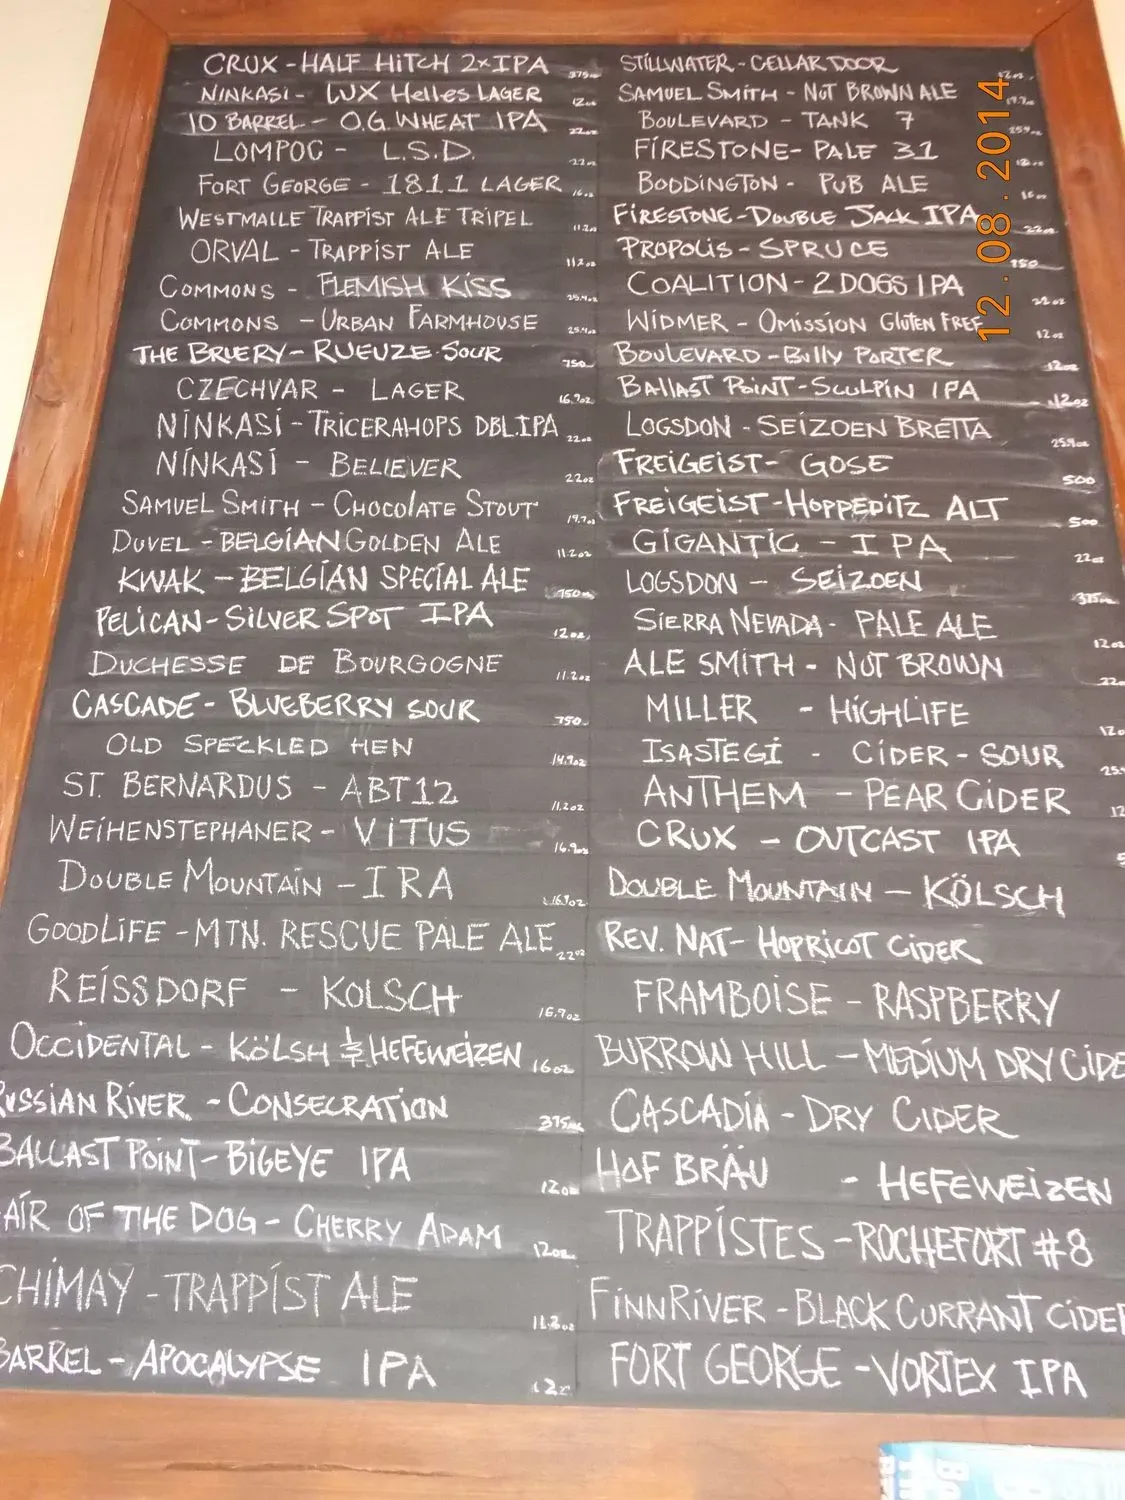 CRUX - HALF HITCH 2xIPA 375ml
NINKASI - LUX Helles LAGER 12oz
10 BARREL - O.G. WHEAT IPA 22oz
LOMPOC - L.S.D. 22oz
FORT GEORGE - 1811 LAGER 16oz
WESTMALLE TRAPPIST ALE TRIPEL 11.2oz
ORVAL - TRAPPIST ALE 11.2oz
COMMONS - FLEMISH KISS 25.4oz
COMMONS - URBAN FARMHOUSE 25.4oz
THE BRUERY - RUEUZE SOUR 750
CZECHVAR - LAGER 16.9oz
NINKASI - TRICERAHOPS DBL.IPA 22oz
NINKASI - BELIEVER 22oz
SAMUEL SMITH - CHOCOLATE STOUT 19.7oz
DUVEL - BELGIAN GOLDEN ALE 11.2oz
KWAK - BELGIAN SPECIAL ALE 750ml
PELICAN - SILVER SPOT IPA 12oz
DUCHESSE DE BOURGOGNE 11.2oz
CASCADE - BLUEBERRY SOUR 750
OLD SPECKLED HEN 14.9oz
ST. BERNARDUS - ABT12 11.2oz
WEIHENSTEPHANER - VITUS 16.9oz
DOUBLE MOUNTAIN - IRA 16.9oz
GOODLIFE - MTN. RESCUE PALE ALE 22oz
REISSDORF - KOLSCH 16.9oz
OCCIDENTAL - KÖLSH & HEFEWEIZEN 16oz
RUSSIAN RIVER - CONSECRATION 375ml
BALLAST POINT - BIGEYE IPA 12oz
AIR OF THE DOG - CHERRY ADAM 12oz
CHIMAY - TRAPPIST ALE 11.2oz
BARREL - APOCALYPSE IPA 12oz
STILLWATER - CELLAR DOOR 12oz
SAMUEL SMITH - NUT BROWN ALE 19.7oz
BOULEVARD - TANK 7 25.4oz
FIRESTONE - PALE 31 12oz
BODDINGTON - PUB ALE 16oz
FIRESTONE - DOUBLE JACK IPA 22oz
PROPOLIS - SPRUCE 750
COALITION - 2 DOGS IPA 22oz
WIDMER - OMISSION GLUTEN FREE 12oz
BOULEVARD - BULLY PORTER 12oz
BALLAST POINT - SCULPIN IPA 12oz
LOGSDON - SEIZOEN BRETTA 25.4oz
FREIGEIST - GOSE 500
FREIGEIST - HOPPEDITZ ALT 500
GIGANTIC - IPA 22oz
LOGSDON - SEIZOEN 375ml
SIERRA NEVADA - PALE ALE 12oz
ALE SMITH - NUT BROWN 22o
MILLER - HIGHLIFE 12o
ISASTEGI - CIDER - SOUR 25.4
ANTHEM - PEAR CIDER 12
CRUX - OUTCAST IPA 5
DOUBLE MOUNTAIN - KÖLSCH
REV. NAT - HOPRICOT CIDER
FRAMBOISE - RASPBERRY
BURROW HILL - MEDIUM DRY CIDE
CASCADIA - DRY CIDER
HOF BRÄU - HEFEWEIZEN
TRAPPISTES - ROCHEFORT #8
FINNRIVER - BLACK CURRANT CIDE
FORT GEORGE - VORTEX IPA
12.08.2014